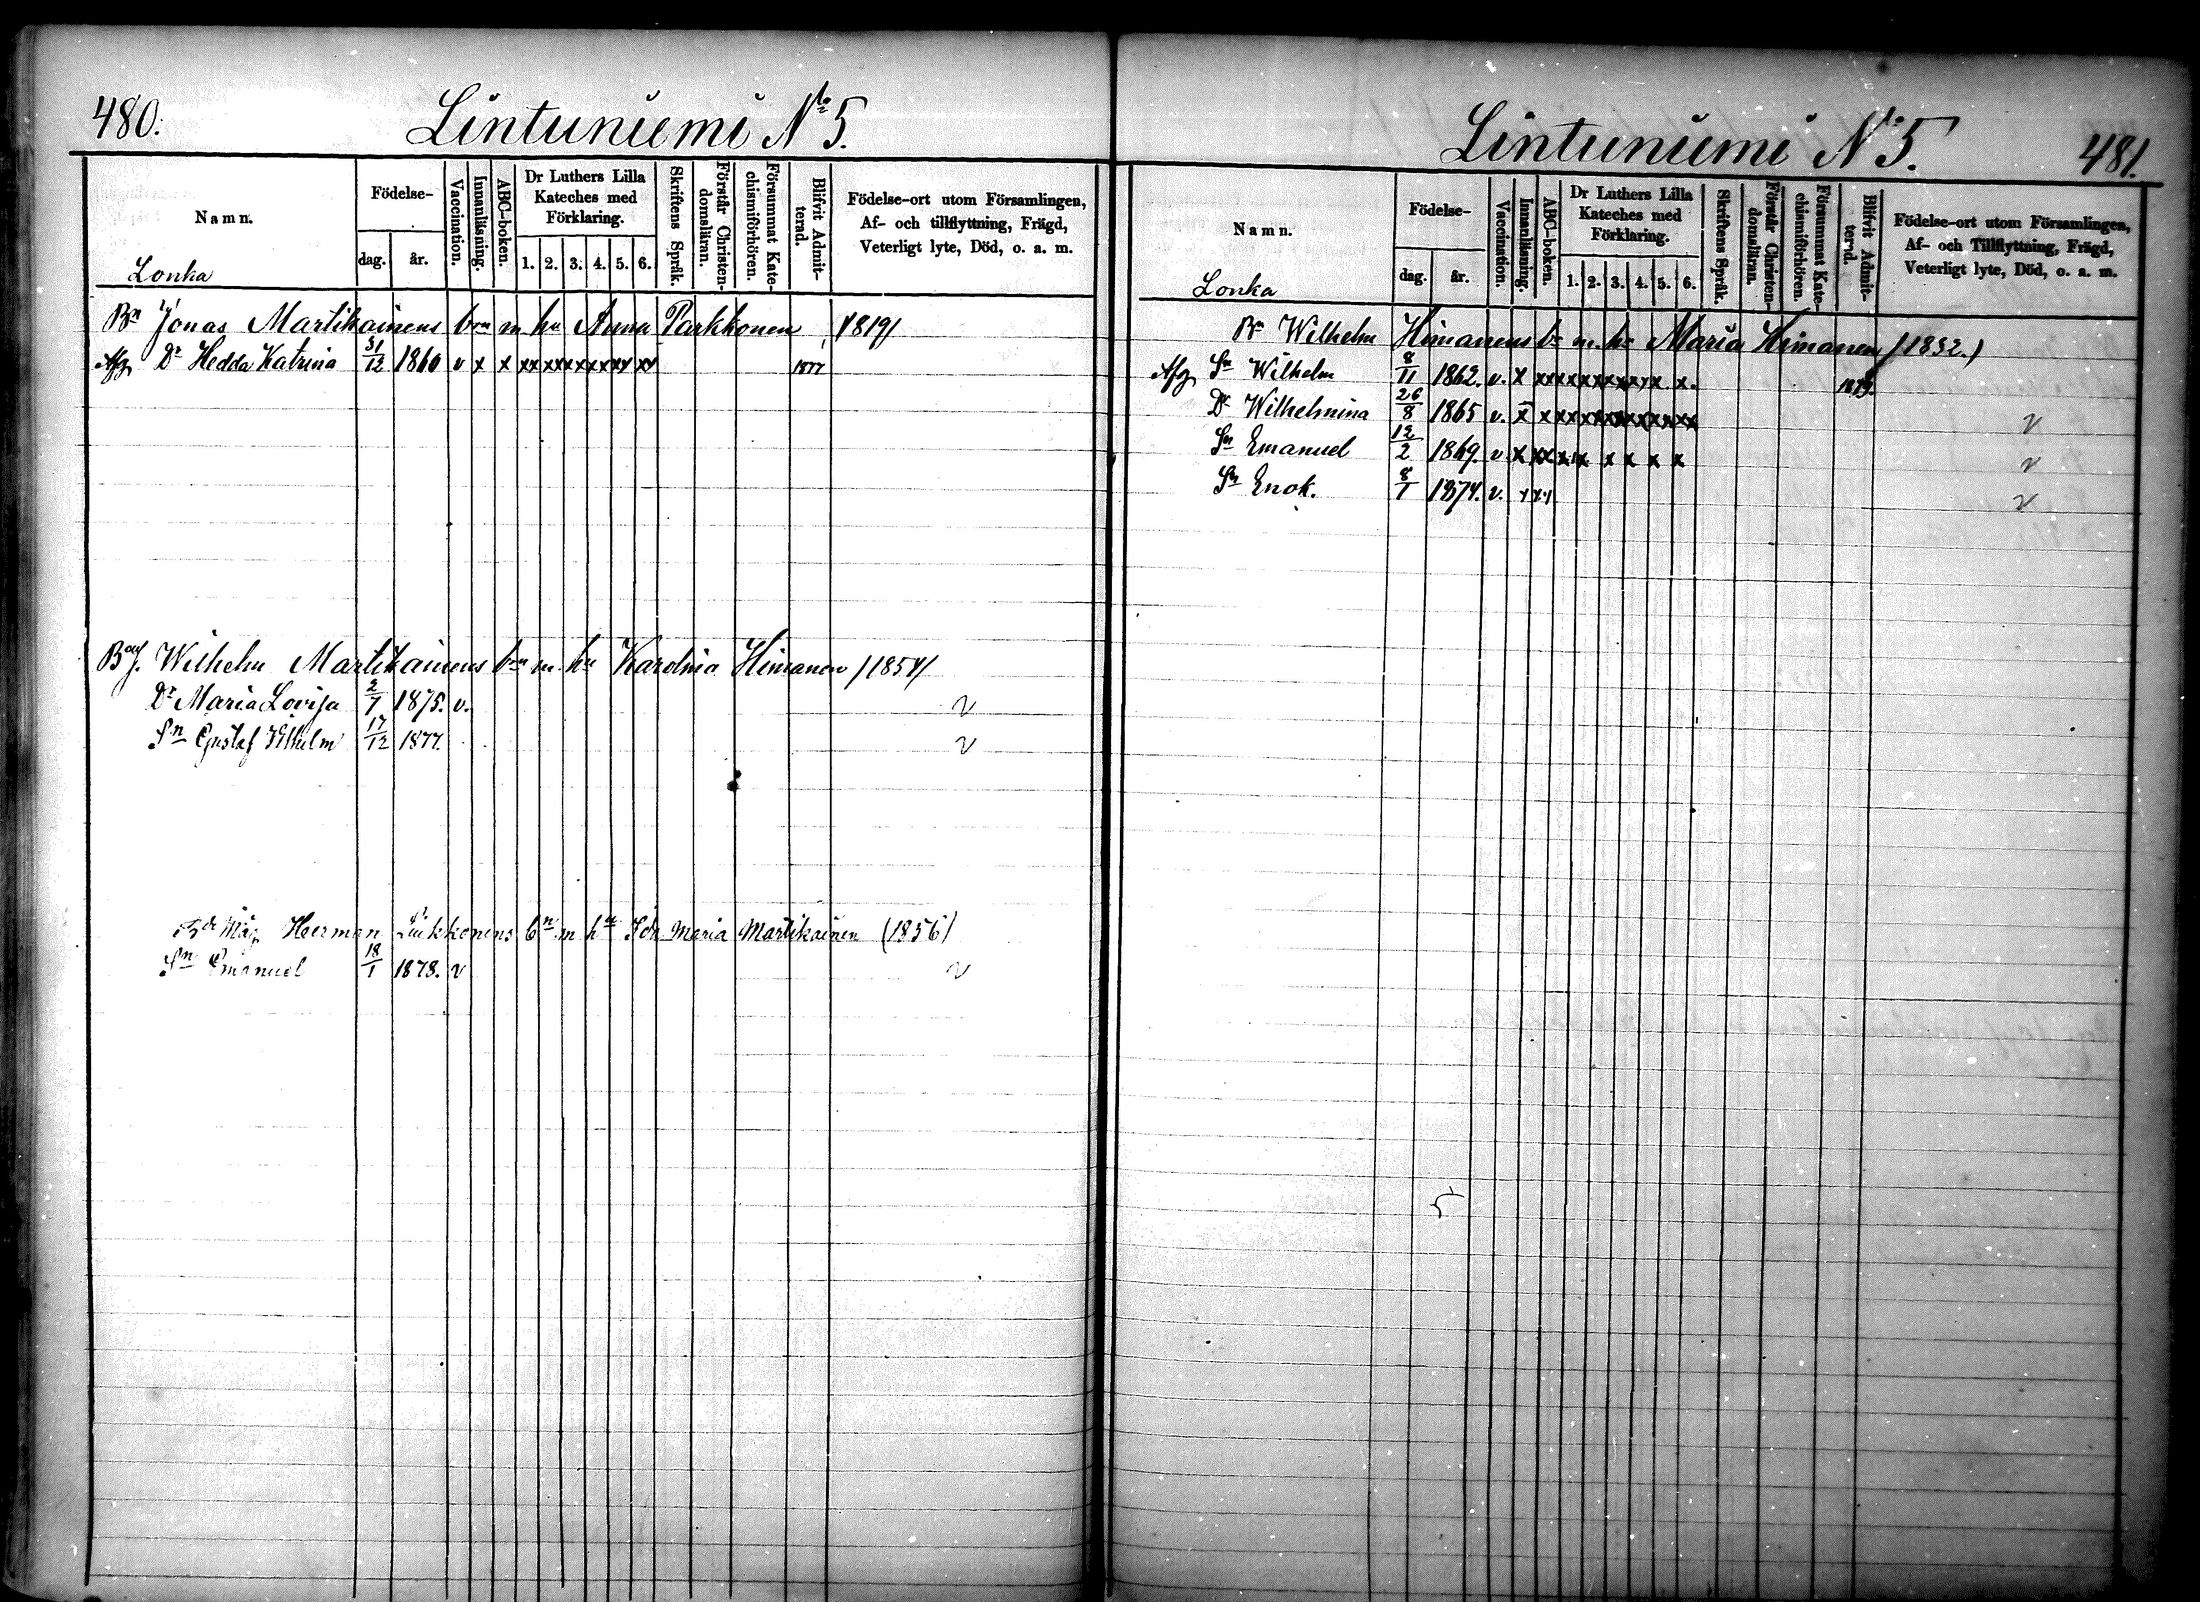 480.
Lintuniemi No 5.
Namn.
Födelse-
dag.
år.
Vaccination.
Innanläsning.
ABC-boken.
Dr Luthers Lilla
Kateches med
Förklaring.
1. 2. 3. 4. 5. 6.
Skriftens Språk.
Förstår Christen-
domsläran.
Försummat Kate-
chismiförhören.
Blifvit Admit-
terad.
Födelse-ort utom Församlingen,
Af- och tillflyttning, Frägd,
Veterligt lyte, Död, o. a. m.
Lonka
Bn Jonas Martikainens brn m hu Anna Parkkonen /1819/
Afg Dr Hedda Katrina 31/12 1860 v x x xx xx xx xx xx xx 1877
Wilhelm Martikainens brn m. hu Karolina Himanen /1854/
Dr Maria Lovisa 2/7 1875. v. v
Sn Gustaf Vilhelm 17/12 1877. v
Herman Luukkonens bn m hu Ida Maria Martikainen (1856)
Sn Emanuel 18/1 1878. v v
Lintuniemi No 5.
481.
Namn.
Födelse-
dag.
år.
Vaccination.
Innanläsning.
ABC-boken.
Dr Luthers Lilla
Kateches med
Förklaring.
1. 2. 3. 4. 5. 6.
Skriftens Språk.
Förstår Christen-
domsläran.
Försummat Kate-
chismiförhören.
Blifvit Admit-
terad.
Födelse-ort utom Församlingen,
Af- och Tillflyttning, Frägd,
Veterligt lyte, Död, o. a. m.
Lonka
Bn Wilhelm Himanens bn m. hu Maria Himanen /1832.)
Afg Sn Wilhelm 8/11 1862. v. x xx xx xx xx xx x. x. 1879.
Dr Wilhelmina 26/8 1865 v. x xx xx xx xx xx xx xx v
Sn Emanuel 12/2 1869. v x xx x x x x x x v
Sn Enok. 8/1 1874. v. x x x v